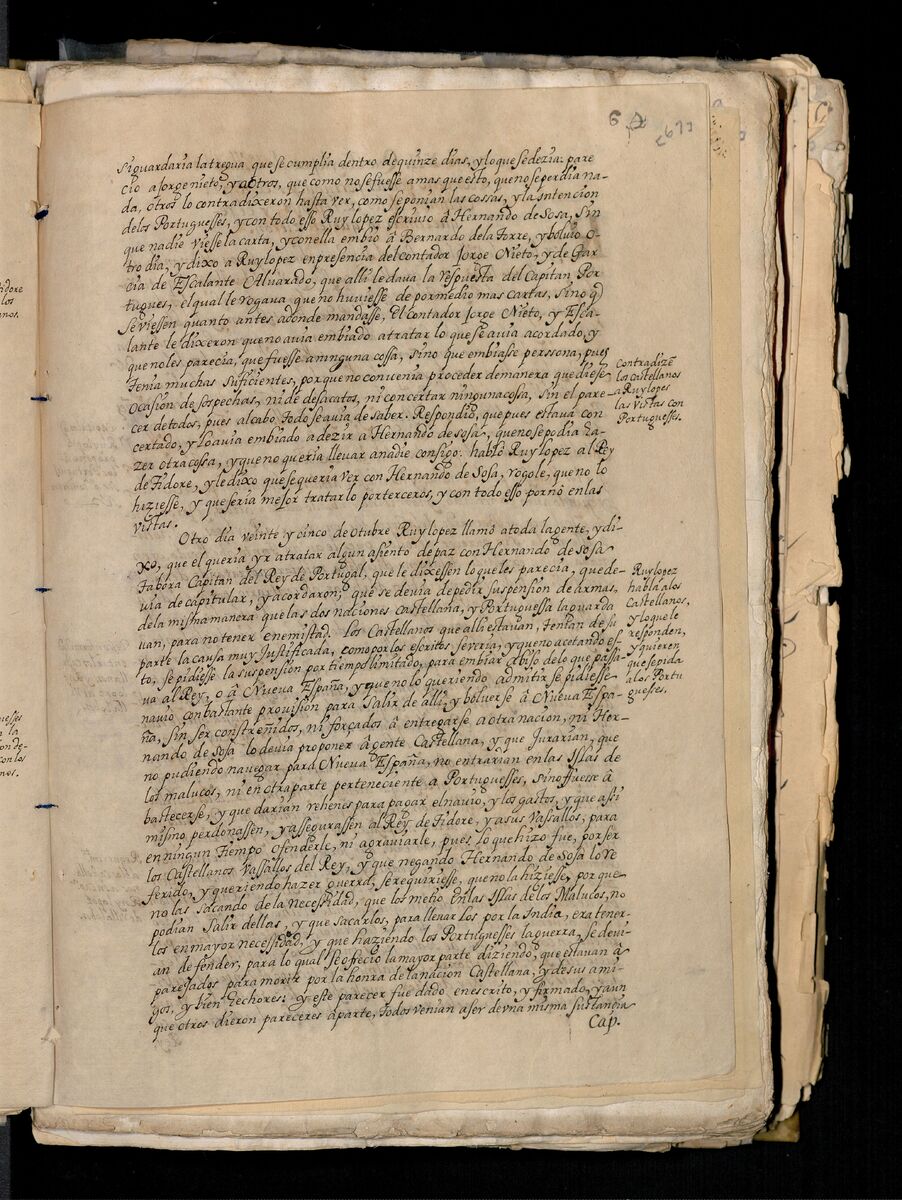 673
si guardaria la tregua que se cumplia dentro de quinze dias, y lo que se dezia: pare
cio a Jorge nieto, y a otros, que como no se fuesse a mas que esto, que no se perdia na-
da, otros lo contradixeron hasta ver, como se ponian las cossas, y la intencion
delos Portuguesses, y con todo esso Ruylopez escriuio â Hernando de Sosa, Sin
que nadie viesse la carta, y con ella embiò â Bernardo dela Torre, y boluio o-
tro dia, y dixo a Ruylopez en presencia del Contador Jorge Nieto, y de Gar
cia de Escalante Aluarado, que alli le daua la respuesta del Capitan Por
tugues, el qual le rogaua que no huuiesse de por medio mas cartas, Sino q̃
se viessen quanto antes adonde mandasse, El Contador Jorge Nieto, y Esca-
lante le dixeron que no auia embiado atratar lo que se auia acordado, y
que no les parecia, que fuesse a ninguna cossa, sino que embiasse perssona, pues
tenia muchas suficientes, porque no conuenia proceder de manera que diese
ocasion de sospechas, ni de desacatos, ni concertar ninguna cossa, sin el pare-
cer de todos, pues al cabo todo se auia de saber. Respondiò, que pues estaua con
certado, y lo auia embiado a dezir a Hernando de sosa, que no se podia ha-
zer otra cossa, y que no queria lleuar a nadie consigo: hablò Ruylopez al Rey
de Tidore, y le dixo que se queria ver con Hernando de Sosa, rogole, que no lo
hiziesse, y que seria mejor tratarlo por terceros, y con todo esso porfiò en las
vistas.
Contradizē
los castellanos
a Ruylopes
las vistas con
Portuguesses.
Otro dia veinte y cinco de Otubre Ruylopez llamò a toda la gente, y di-
xo, que el queria yr atratar algun asiento de paz con Hernando de sosa
Tabora Capitan del Rey de Portugal, que le dixessen lo que les parecia, que de-
uia de capitular, y acordaron; que se deuia de pedir suspension de armas,
dela misma manera que las dos naciones castellana, y Portuguessa la guarda
uan, para no tener enemistad. Los Castellanos que alli estauan, tenian de su
parte la causa muy justificada, como por los escritos se veria, y que no acetando es
to, se pidiesse la suspension por tiempo limitado, para embiar abiso delo que passa-
ua al Rey, o â Nueua España, y que no lo queriendo admitir se pidiesse
nauio con bastante prouision para Salir de alli, y boluerse â Nueua Espa-
ña, sin ser constreñidos, ni forçados â entregarse a otra nacion, ni Her-
nando de Sosa lo deuia proponer â gente Castellana, y que Jurarian, que
no pudiendo nauegar para Nueua España, no entrarian en las Islas de
los malucos, ni en otra parte perteneciente a Portuguesses, sino fuesse â
bastecerse, y que darian rehenes para pagar el nauio, y los gastos, y que assi
mismo perdonassen, y assegurassen al Rey de Tidore, y a sus Vassallos, para
en ningun tiempo ofenderle, ni agrauiarle, pues lo que hizo fue, por ser
los Castellanos Vassallos del Rey, y que negando Hernando de Sosa lo re
ferido, y queriendo hazer guerra, se requiriesse, que no la hiziesse, porque
no las sacando de la necessidad, que los metio en las Islas de los Malucos, no
podian salir dellas, y que sacarlos, para lleuar los por la India, era tener-
los en mayor necessidad, y que haziendo los Portuguesses la guerra, se deui-
an defender, para lo qual se ofrecio la mayor parte diziendo, que estauan a-
parejados para morir por la honra dela nacion Castellana, y de sus ami-
gos, y bien hechores: y este parecer fue dado en escrito, y firmado, y aun
que otros dieron pareceres â parte, todos venian a ser de vna misma sustancia
Ruylopez
habla a los
Castellanos,
y lo que le
responden,
y quieren
que se pida
a los Portu
guesses.
Cap.